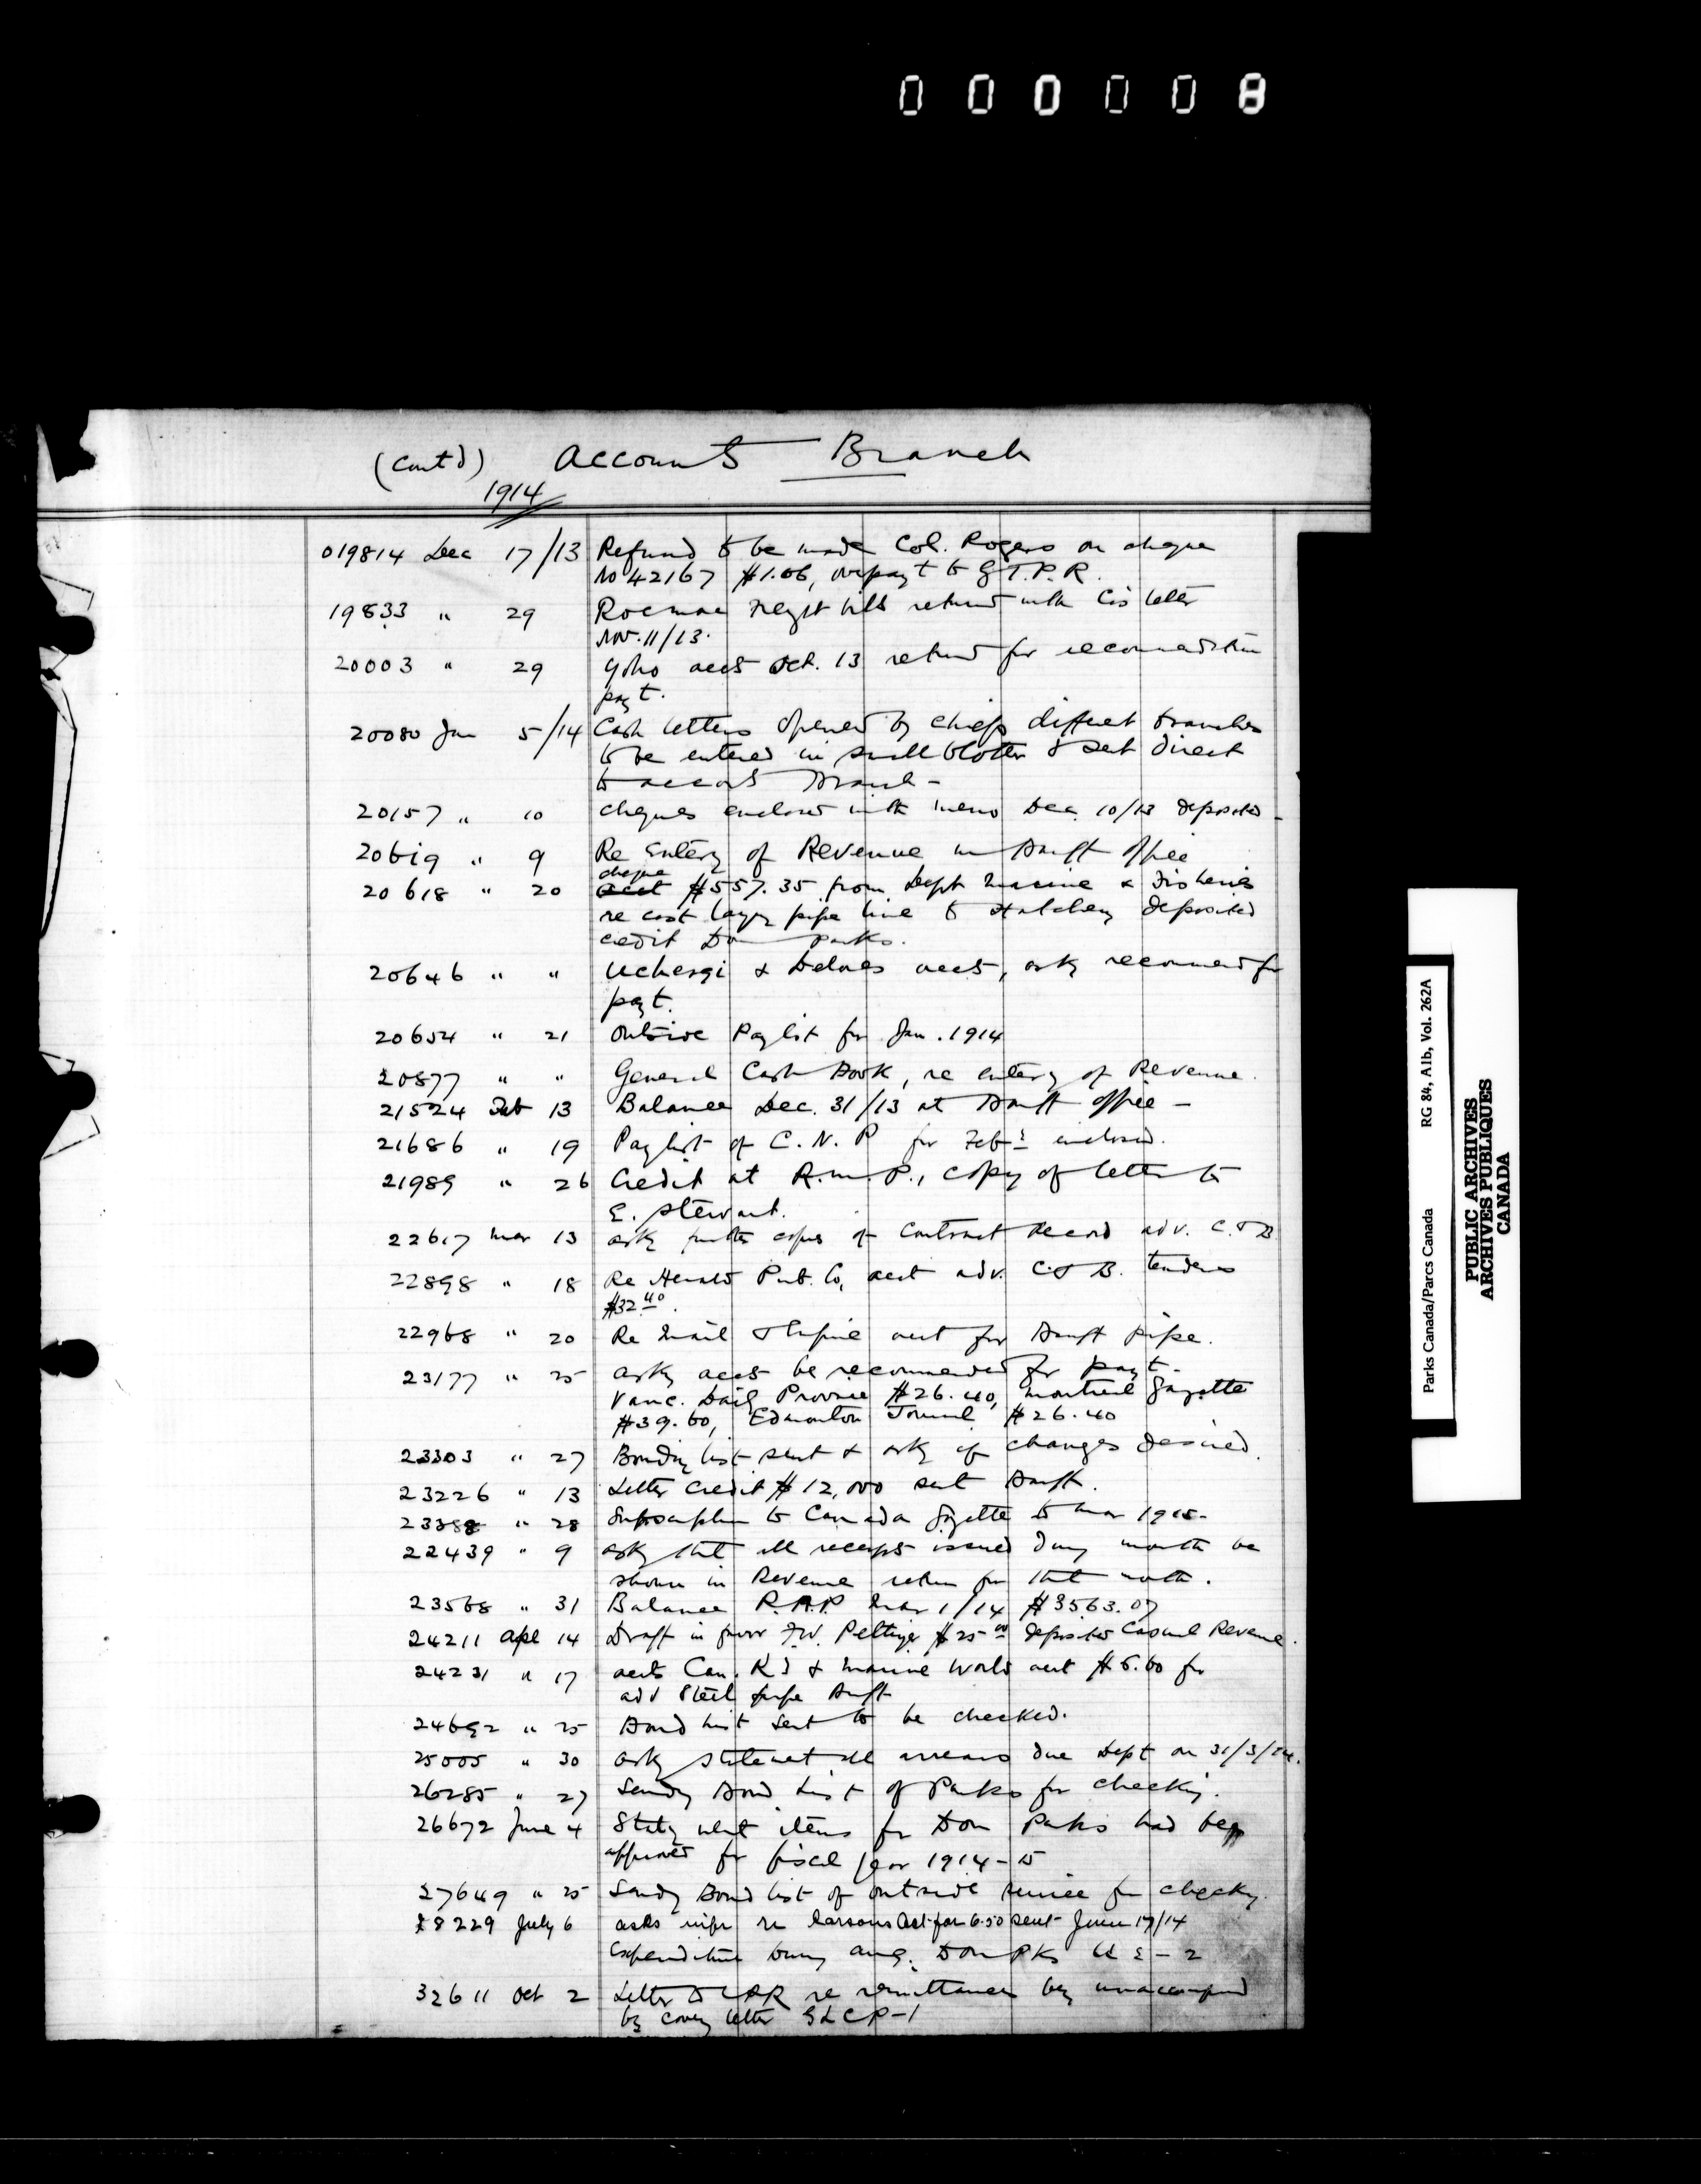 000008
(Contd) Accounts Branch
1914
019814 Dec 17/13 Refund to be made Col. Rogers on cheque
No 42167 $1.06, overpayt to G.T.P.R.
19833 " 29 returned with Co's letter
Nov. 11/13.
20003 " 29 Yoho accts Oct. 13 returned for recommendation
payt.
20080 Jan 5/14 Cash letters opened by chiefs different branches
to be entered in small blotter & sent direct
to accounts Branch -
20157 " 10 Cheques enclosed with memo Dec. 10/13 deposited -
20619 " 9 Re Entery of Revenue in Banff office
cheque
20618 " 20 acct $557.35 from Dept Marine & Fisheries
re cost laying pipe line to Hatchery deposited
credit Dom parks.
20646 " " & accts, askg recommend for
payt.
20654 " 21 Outside Paylist for Jan. 1914
20877 " " General Cash Book, re entery of Revenue.
21524 Feb 13 Balance Dec. 31/13 at Banff office -
21686 " 19 Paylist of C. N. P for Feby enclosed.
21989 " 26 Credit at R.M.P., copy of letter to
E. Stewart.
22617 Mar 13 askg further copies of Contract Record adv. C. & B
22898 " 18 Re Herald Pub. Co, acct adv. C & B. tenders
$32.40.
22968 " 20 Re Mail & Empire acct for Banff pipe.
23177 " 25 askg accts be recommended for payt.
Vanc. Daily Province $26.40, Montreal Gazette
$39.60, Edmonton Journal $26.40
23303 " 27 Bonding list sent & askg if changes desired.
23226 " 13 Letter Credit $12,000 sent Banff.
23388 " 28 Subscription to Canada Gazette to Mar 1915-
22439 " 9 askg that all receipts issued during month be
shown in Revenue return for that month.
23568 " 31 Balance R.M.P. Mar 1/14 $3563.07
24211 Apl 14 Draft in favor F.W. $25.00 deposited Casual Revenue.
24231 " 17 accts Can. Ry & Marine World acct $6.60 for
adv Steel pipe Banff
24692 " 25 Bond list sent to be checked.
25005 " 30 askg statement all arrears due Dept on 31/3/14.
26285 " 27 Sending Bond List of Parks for checking.
26672 June 4 Stating what items for Dom Parks had been
approved for fiscal year 1914-15
27649 " 25 Sending Bond list of outside service for checking.
28229 July 6 asks infor re Larsons Act for 6.50 sent June 17/14
Expenditure during Aug. Dom Pks U 2 - 2
32611 Oct 2 Letter to CPR re remittances being unaccompanied
by covering letter GLCP-1
Parks Canada/Parcs Canada RG 84, A1b, Vol. 262A
PUBLIC ARCHIVES
ARCHIVES PUBLIQUES
CANADA